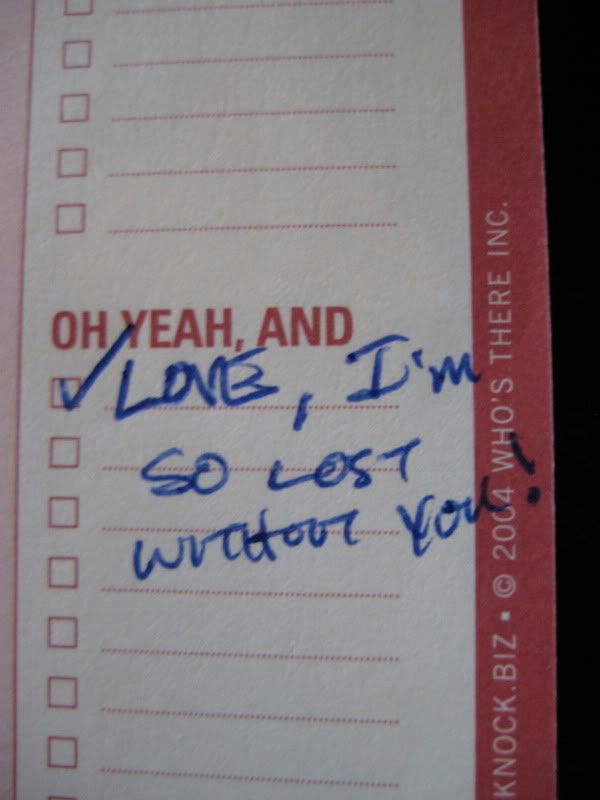 OH YEAH, AND
✓ LOVE, I'm
SO LOST
WITHOUT YOU!
KNOCK.BIZ • © 2004 WHO'S THERE INC.